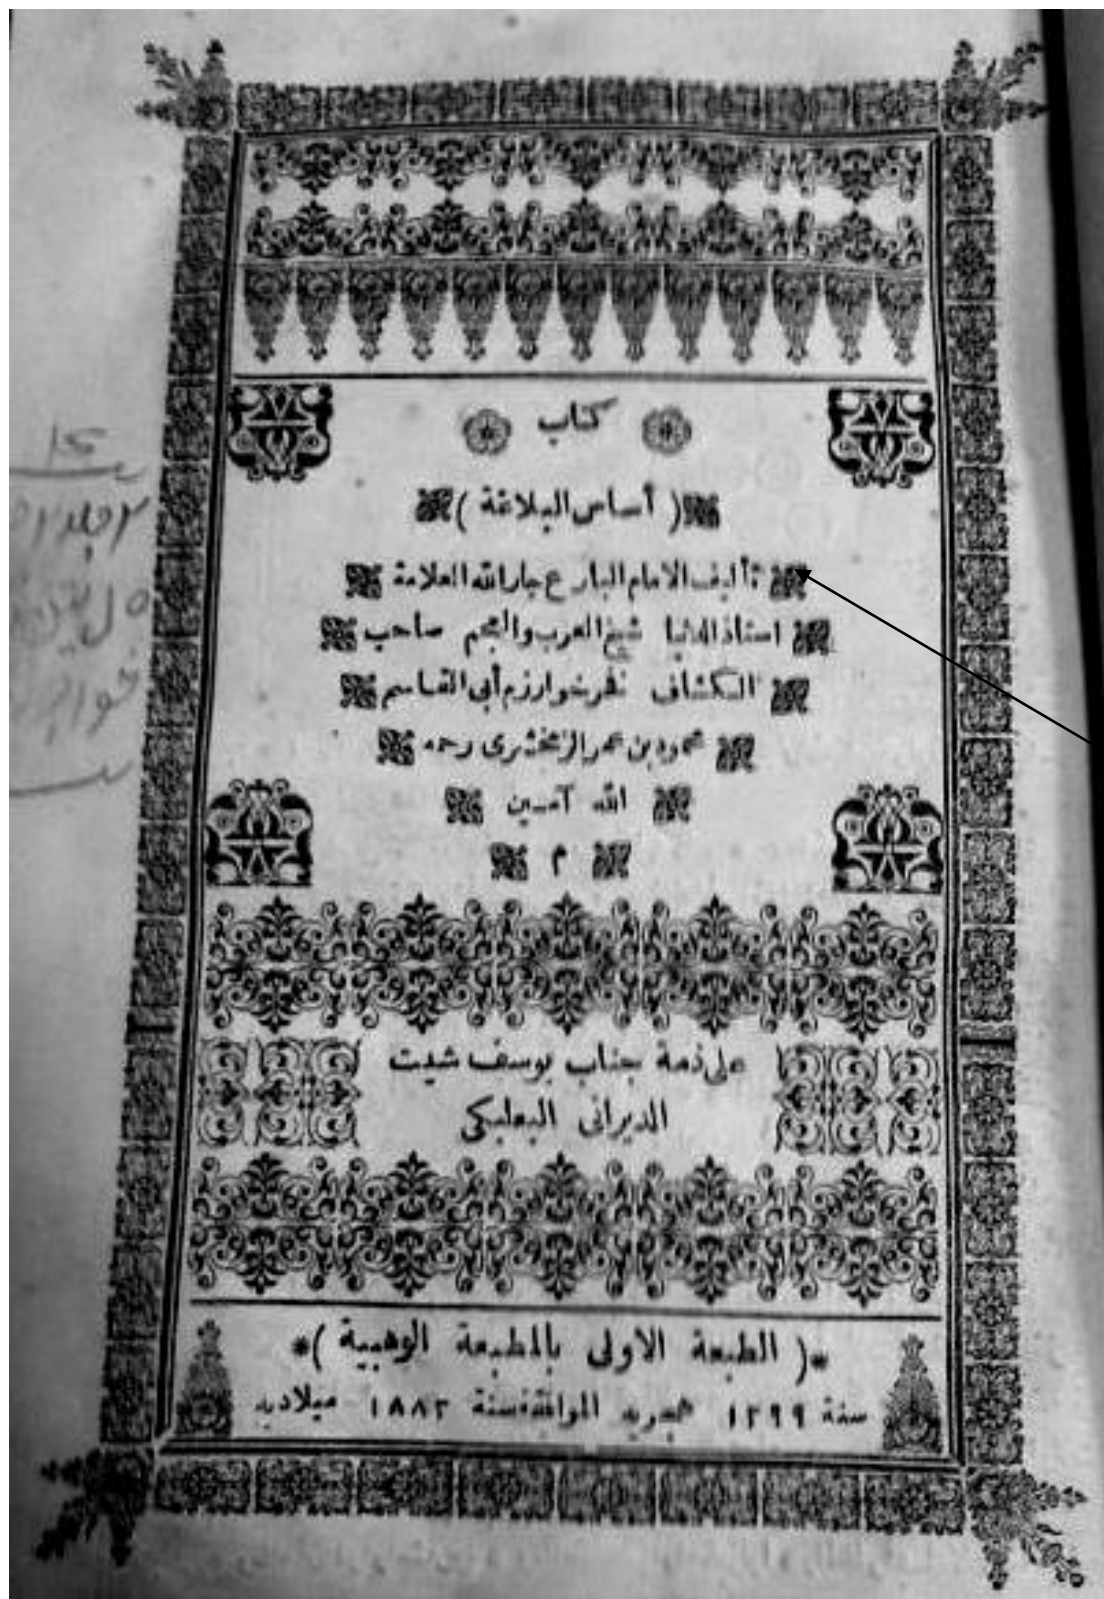 كتاب
(أساس البلاغة)
تأليف الامام البارع جار الله العلامة
استاذ الدنيا شيخ العرب والعجم صاحب
الكشاف فخر خوارزم أبى القاسم
محمود بن عمر الزمخشرى رحمه
الله آمين
م
على ذمة جناب يوسف شيت
الديرانى البعلبكى
*(الطبعة الاولى بالمطبعة الوهبية)*
سنة ١٢٩٩ هجريه الموافقة سنة ١٨٨٢ ميلاديه